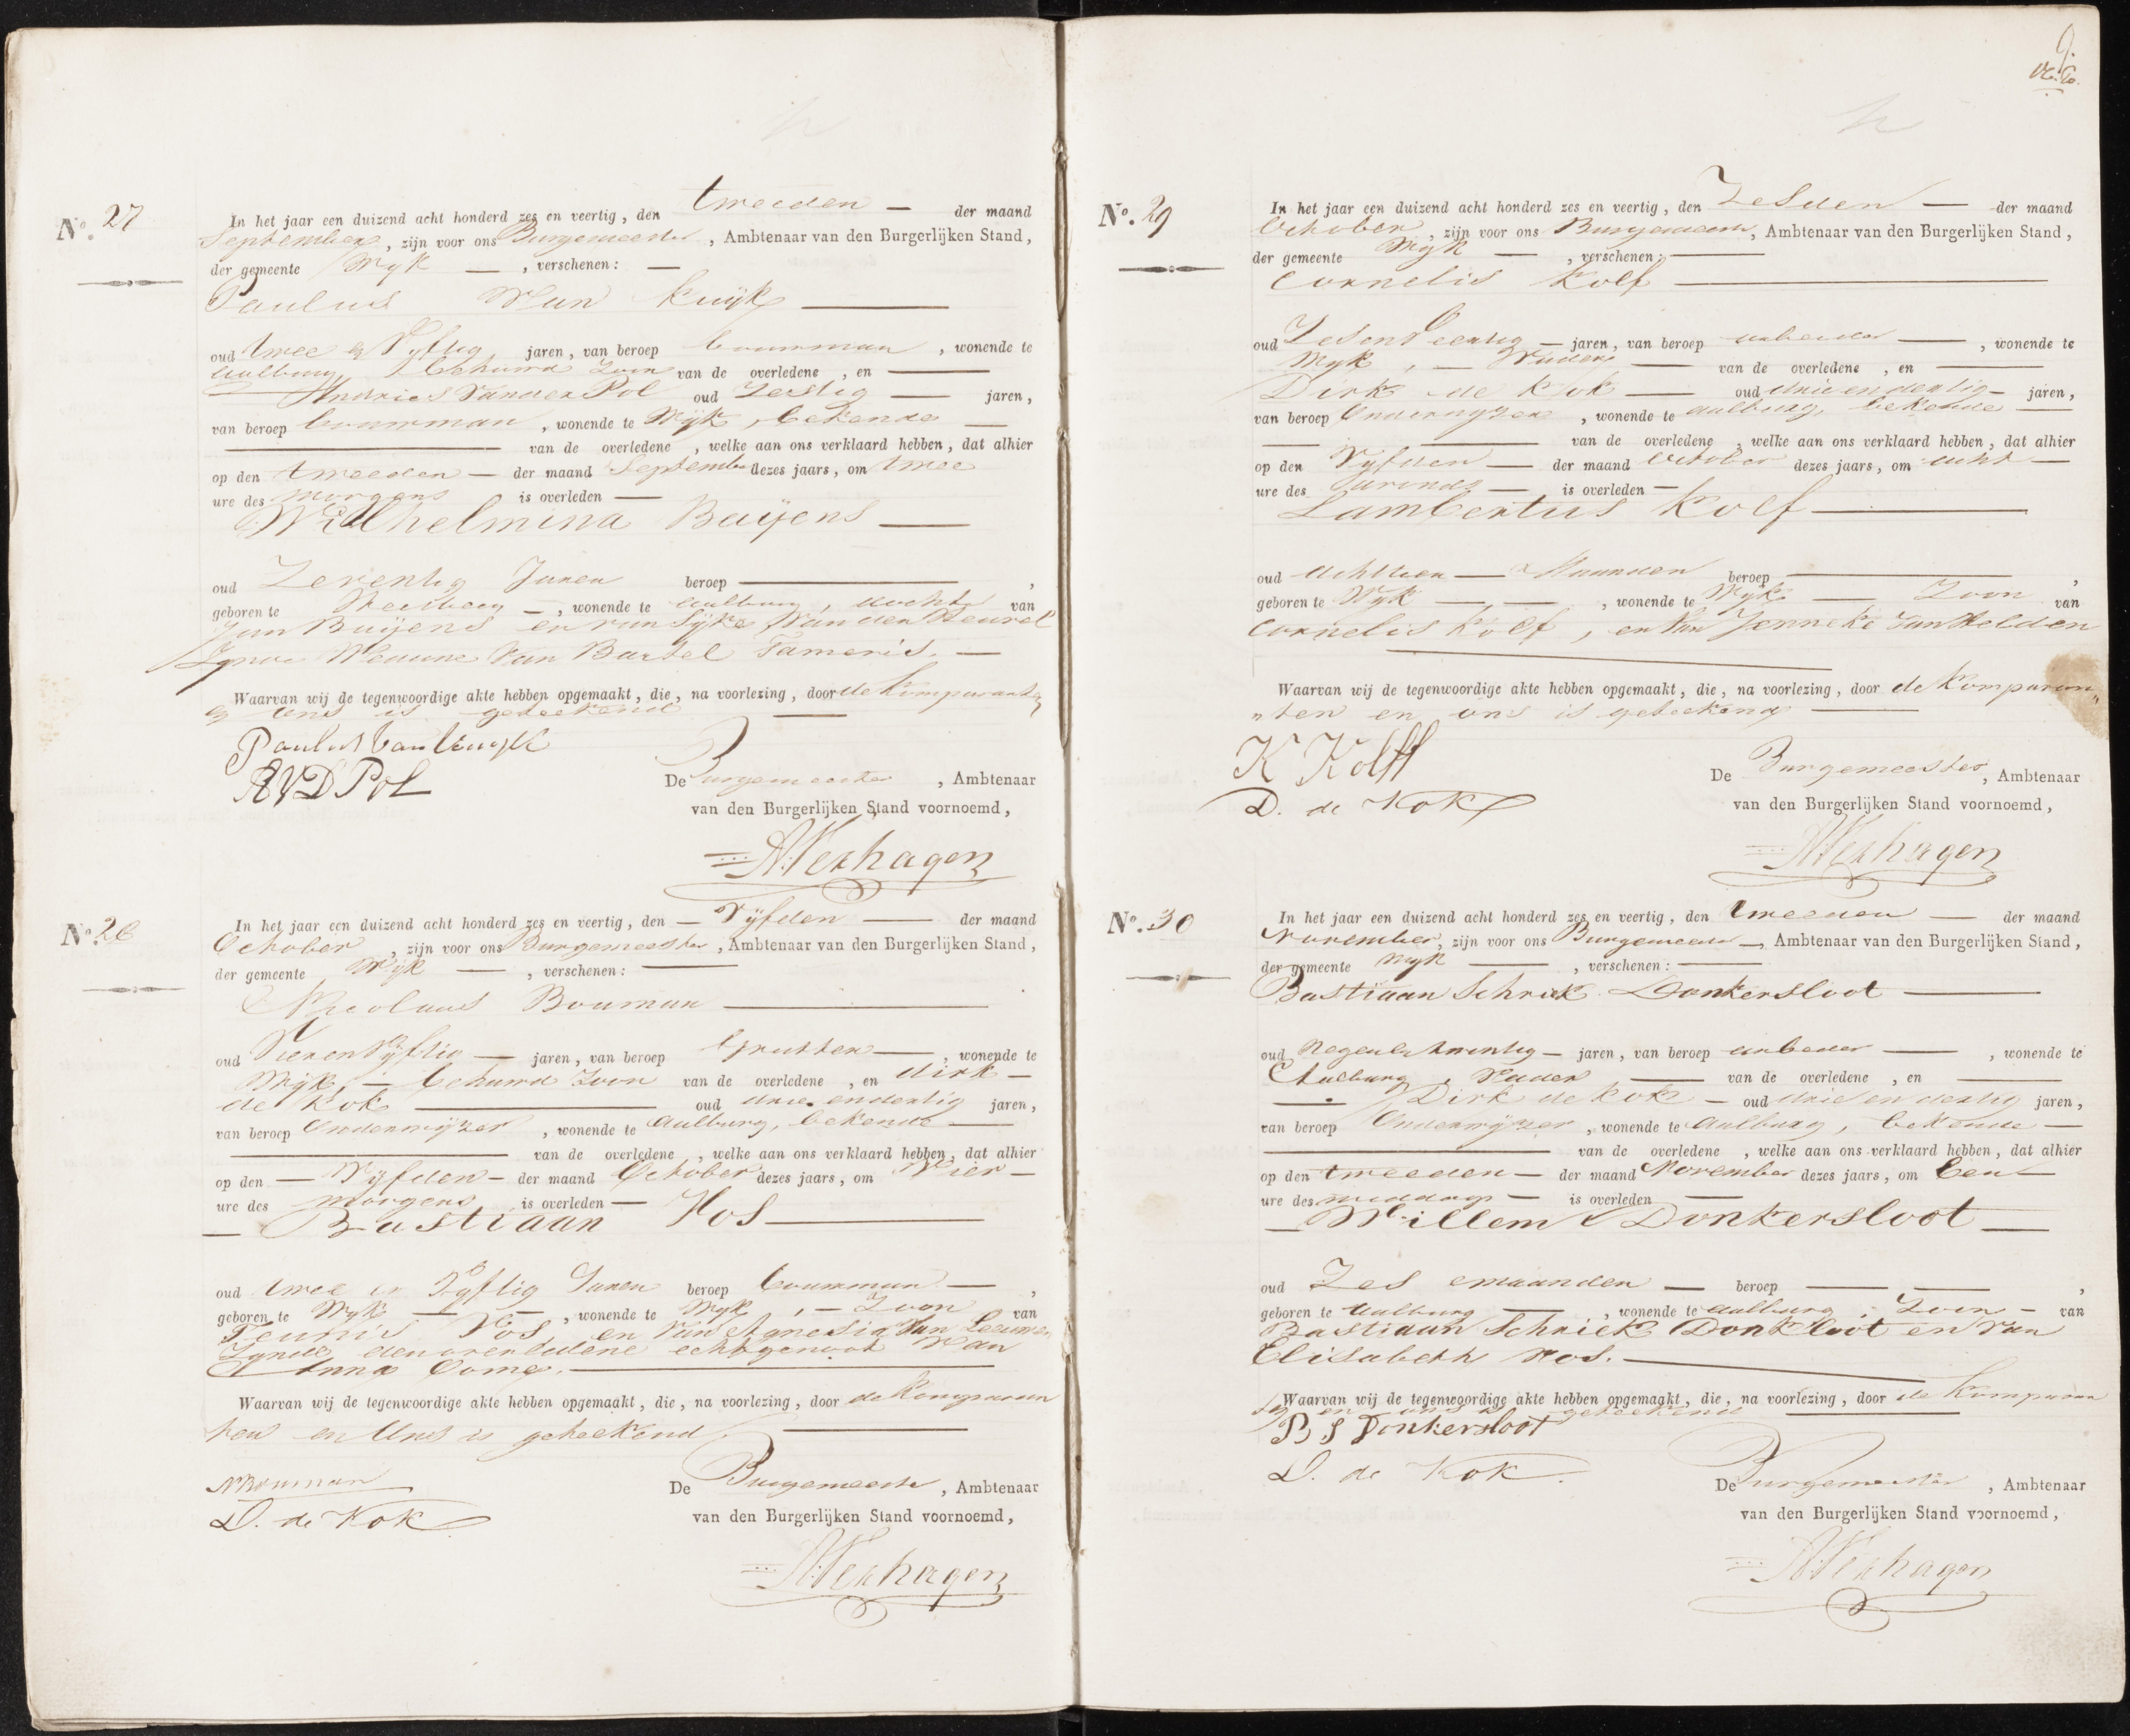 N.º 27
In het jaar een duizend acht honderd zes en veertig, den tweeden — der maand
September, zijn voor ons Burgemeester, Ambtenaar van den Burgerlijken Stand,
der gemeente Wyk —, verschenen: —
Paulus Van Kuijk —
oud twee en Vyftig jaren, van beroep bouwman, wonende te
Aulburg, behuwd Zoon van de overledene, en —
— Andries Van der Pol oud Zestig — jaren,
van beroep bouwman, wonende te Wyk, bekende —
— van de overledene, welke aan ons verklaard hebben, dat alhier
op den tweeden — der maand September dezes jaars, om twee
ure des morgens is overleden —
Wilhelmina Buijens —
oud Zeventig Jaren beroep —,
geboren te —, wonende te Aulburg, dochter van
Jan Buijens en van Sijke Van den Heuvel
Weduwe Van Bartel Tameris. —
Waarvan wij de tegenwoordige akte hebben opgemaakt, die, na voorlezing, door de Komparanten
en ons is geteekend —
Paulus Van Kuijk
AVD Pol
De Burgemeester, Ambtenaar
van den Burgerlijken Stand voornoemd,
A. Verhagen
N.º 28
In het jaar een duizend acht honderd zes en veertig, den — Vyfden — der maand
October, zijn voor ons Burgemeester, Ambtenaar van den Burgerlijken Stand,
der gemeente Wyk —, verschenen: —
Nicolaas Bouman —
oud Vier en Vyftig — jaren, van beroep Grutter —, wonende te
Wijk, — behuwd Zoon van de overledene, en Dirk —
de Kok — oud drie en dertig jaren,
van beroep Onderwijzer, wonende te Aulburg, bekende —
— van de overledene, welke aan ons verklaard hebben, dat alhier
op den — Vyfden — der maand October dezes jaars, om Vier —
ure des morgens is overleden —
— Bastiaan Vos —
oud twee en Vyftig Jaren beroep bouwman —,
geboren te Wyk —, wonende te Wyk, — Zoon van
Teunis Vos en Van Agnesia Van Leeuwen
Zynde den overledene echtgenoot Van
Anna Come. —
Waarvan wij de tegenwoordige akte hebben opgemaakt, die, na voorlezing, door de Komparan
ten en Ons is geteekend. —
N Bouman
D. de Kok
De Burgemeester, Ambtenaar
van den Burgerlijken Stand voornoemd,
A. Verhagen
N.º 29
In het jaar een duizend acht honderd zes en veertig, den Zesden — der maand
October, zijn voor ons Burgemeester, Ambtenaar van den Burgerlijken Stand,
der gemeente Wyk —, verschenen: —
Cornelis Kolf —
oud Zes en Veertig — jaren, van beroep arbeider —, wonende te
Wyk, — Vader — van de overledene, en —
Dirk de Kok — oud drie en dertig — jaren,
van beroep Onderwyzer, wonende te Aulburg, bekende —
— van de overledene, welke aan ons verklaard hebben, dat alhier
op den Vyfden — der maand October dezes jaars, om acht —
ure des avonds — is overleden —
Lambertus Kolf —
oud Achttien — Maanden beroep —,
geboren te Wyk —, wonende te Wyk — Zoon van
Cornelis Kolf, en Van Jenneke Van Helden
Waarvan wij de tegenwoordige akte hebben opgemaakt, die, na voorlezing, door de Komparan„
„ten en ons is geteekend —
K Kolff
D. de Kok
De Burgemeester, Ambtenaar
van den Burgerlijken Stand voornoemd,
A. Verhagen
N.º 30
In het jaar een duizend acht honderd zes en veertig, den tweeden — der maand
November, zijn voor ons Burgemeester —, Ambtenaar van den Burgerlijken Stand,
der gemeente Wyk —, verschenen: —
Bastiaan Schriek Donkersloot —
oud Negen en twintig — jaren, van beroep arbeider —, wonende te
Aulburg, Vader — van de overledene, en —
— Dirk de Kok — oud drie en dertig jaren,
van beroep Onderwijzer, wonende te Aulburg, bekende —
— van de overledene, welke aan ons verklaard hebben, dat alhier
op den tweeden — der maand November dezes jaars, om Een —
ure des middags — is overleden —
— Willem Donkersloot —
oud Zes maanden — beroep —,
geboren te Aulburg —, wonende te Aulburg, Zoon — van
Bastiaan Schriek Donksloot en van
Elisabeth Vos. —
Waarvan wij de tegenwoordige akte hebben opgemaakt, die, na voorlezing, door de Komparan
ten en ons is geteekend —
B S Donkersloot
D. de Kok.
De Burgemeester, Ambtenaar
van den Burgerlijken Stand voornoemd,
A. Verhagen